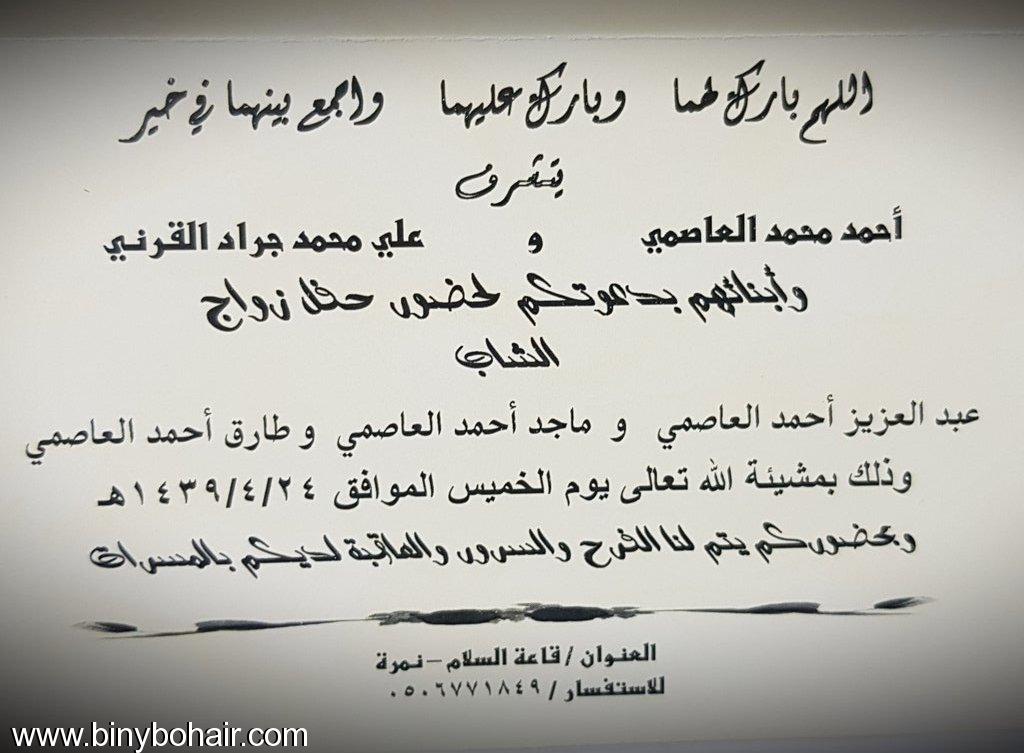 اللهم بارك لهما وبارك عليهما واجمع بينهما في خير
يتشرف
أحمد محمد العاصمي و علي محمد جراد القرني
وأبنائهم بدعوتكم لحضور حفل زواج
الشاب
عبد العزيز أحمد العاصمي و ماجد أحمد العاصمي و طارق أحمد العاصمي
وذلك بمشيئة الله تعالى يوم الخميس الموافق ١٤٣٩/٤/٢٤هـ
وبحضوركم يتم لنا الفرح والسرور والعاقبة لديكم بالمسرات
العنوان / قاعة السلام – نمرة
للاستفسار / ٠٥٠٦٧٧١٨٤٩
www.binybohair.com